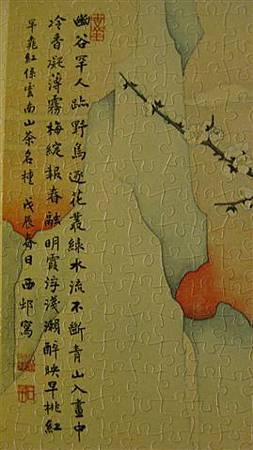 幽谷罕人跡野鳥逐花叢綠水流不斷青山入畫中
冷香凝薄霧梅綻報春融明霞浮淺瀨醉映早桃紅
早桃紅係雲南山茶名種 戊辰春日 西邨寫